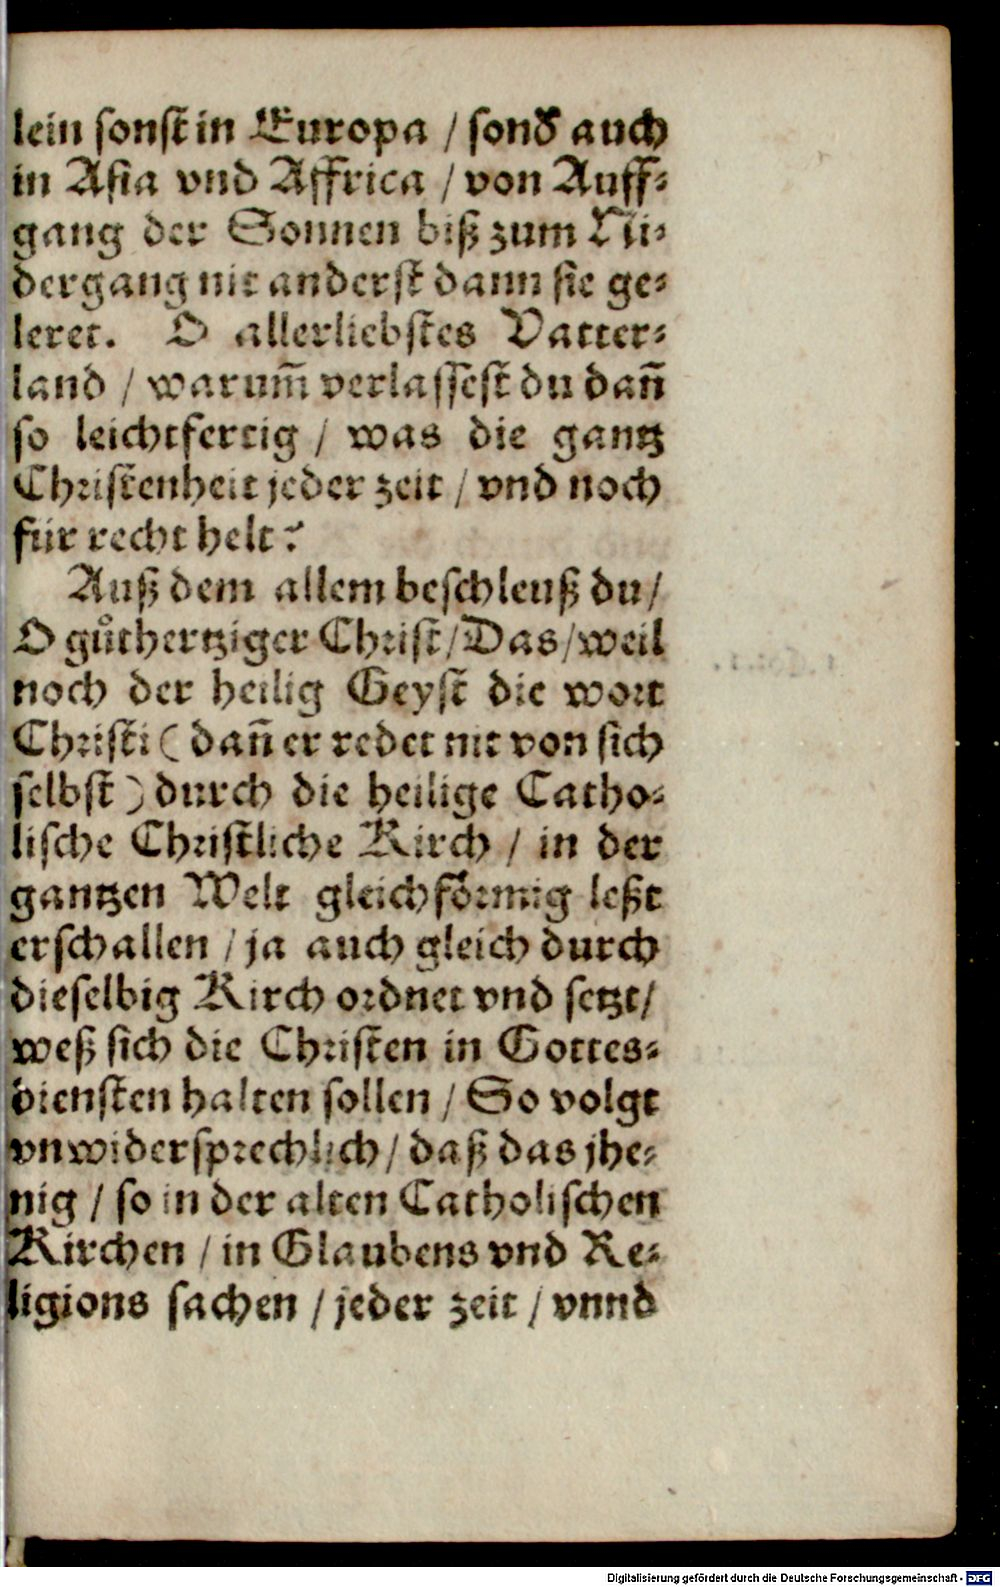 lein sonst in Europa / sonð auch
in Asia vnd Affrica / von Auff⸗
gang der Sonnen biß zum Ni⸗
dergang nit anderst dann sie ge⸗
leret. O allerliebstes Vatter⸗
land / warum̃ verlassest du dañ
so leichtfertig / was die gantz
Christenheit jeder zeit / vnd noch
für recht helt?
Auß dem allem beschleuß du /
O gůthertziger Christ / Das / weil
noch der heilig Geyst die wort
Christi ( dañ er redet nit von sich
selbst ) durch die heilige Catho⸗
lische Christliche Kirch / in der
gantzen Welt gleichförmig leßt
erschallen / ja auch gleich durch
dieselbig Kirch ordnet vnd setzt /
weß sich die Christen in Gottes⸗
diensten halten sollen / So volgt
vnwidersprechlich / daß das jhe⸗
nig / so in der alten Catholischen
Kirchen / in Glaubens vnd Re⸗
ligions sachen / jeder zeit / vnnd
Digitalisierung gefördert durch die Deutsche Forschungsgemeinschaft - DFG